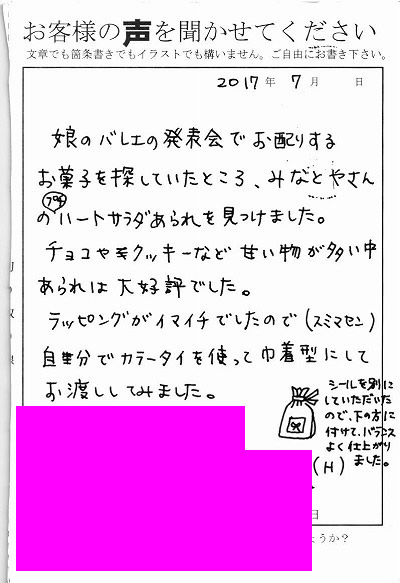 お客様の声を聞かせてください
文章でも箇条書きでもイラストでも構いません。ご自由にお書き下さい。
2017年 7月 日
娘のバレエの発表会でお配りする
お菓子を探していたところ、みなとやさん
のハートサラダあられを見つけました。
チョコやクッキーなど甘い物が多い中
あられは大好評でした。
ラッピングがイマイチでしたので(スミマセン)
自分でカラータイを使って巾着型にして
お渡ししてみました。
シールを別に
していただいた
ので、下の方に
付けて、バランス
よく仕上がり
ました。
(H)
日
ょうか?